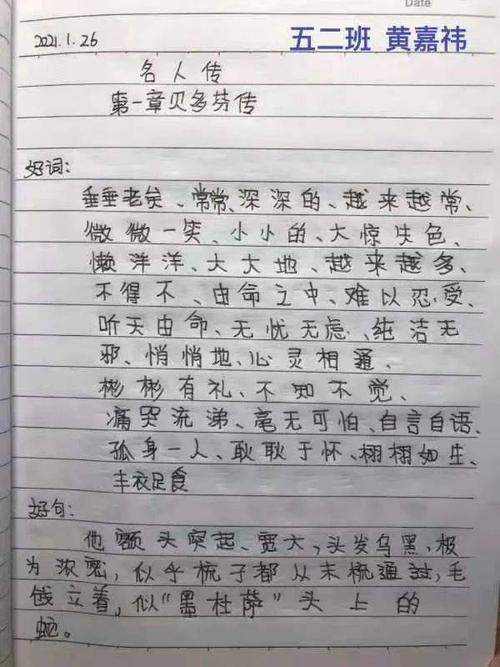 Date
2021.1.26
五二班 黄嘉祎
名人传
第一章贝多芬传
好词:
垂垂老矣、常常、深深的、越来越常、
微微一笑、小小的、大惊失色、
懒洋洋、大大地、越来越多、
不得不、由命之中、难以忍受、
听天由命、无忧无虑、纯洁无
邪、悄悄地、心灵相通、
彬彬有礼、不知不觉、
痛哭流涕、毫无可怕、自言自语、
孤身一人、耿耿于怀、栩栩如生、
丰衣足食
好句:
他额头突起、宽大,头发乌黑,极
为浓密,似乎梳子都从未梳通过,毛
戗立着,似“墨杜萨”头上的
蛇。